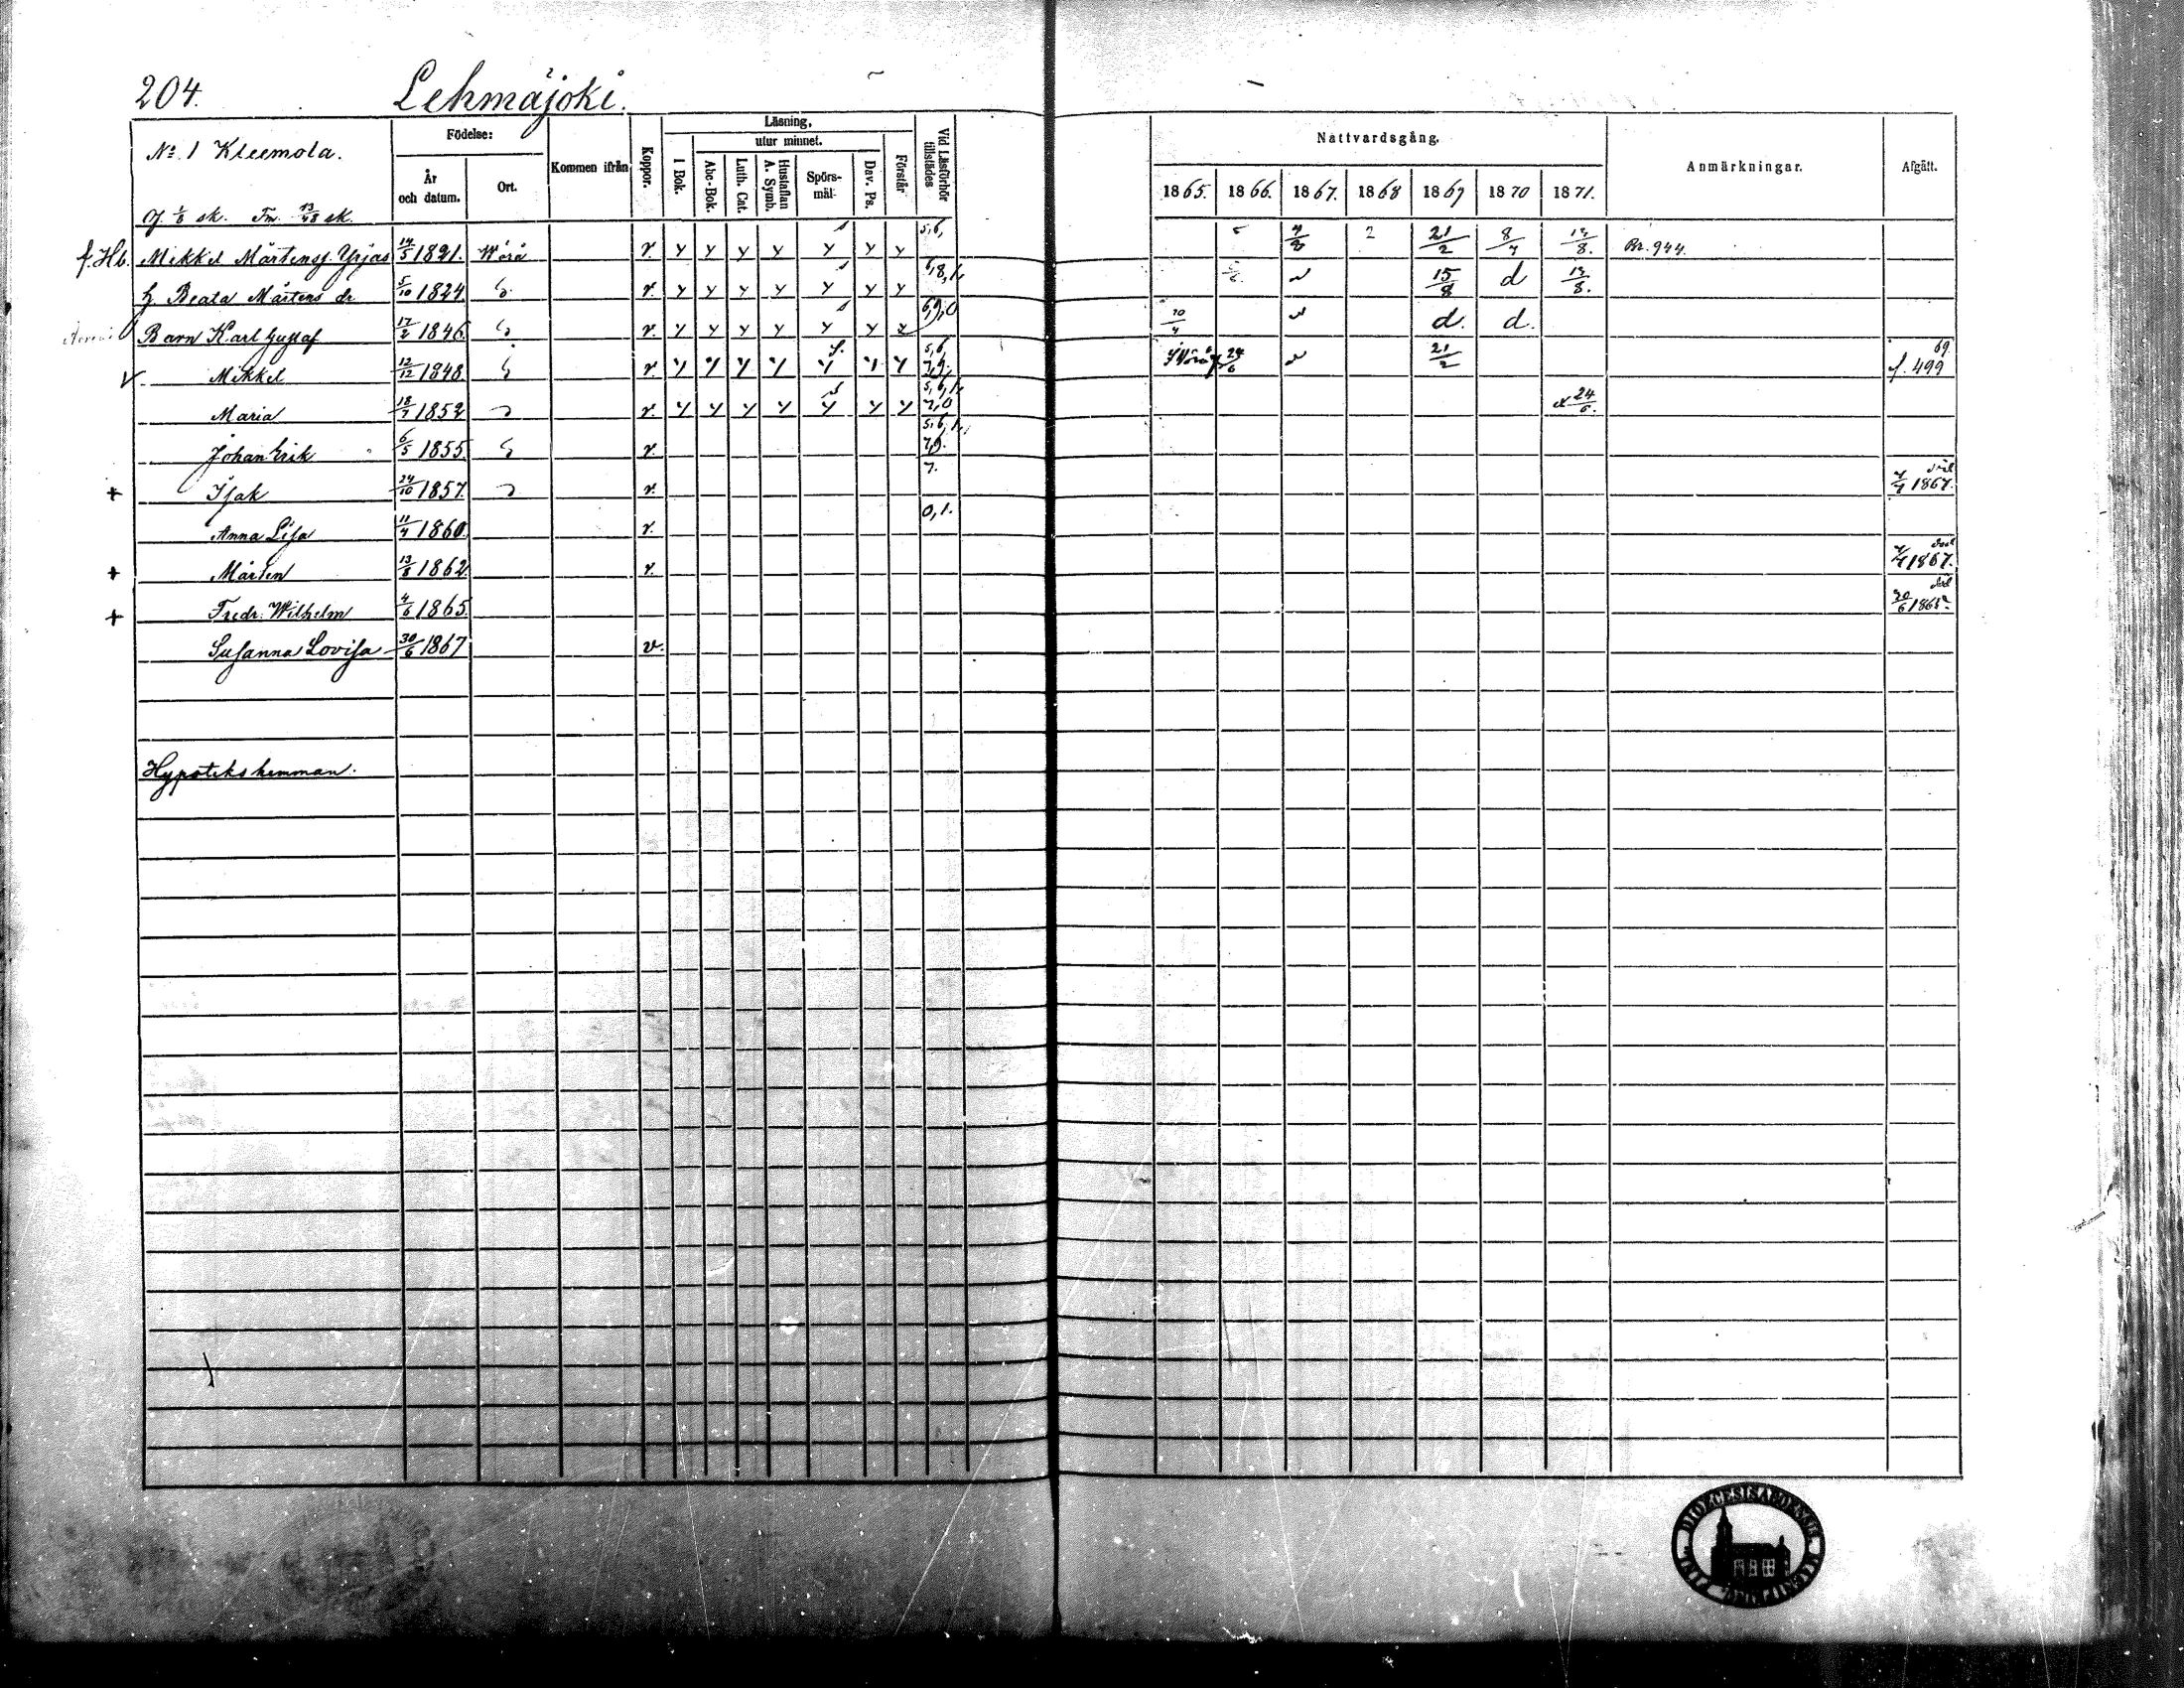 204. Lehmäjoki.
Nº 1 Kleemola. Födelse: Kommen ifrån Koppor. Läsning, Vid Läsförhör tillstädes Nattvardsgång. Anmärkningar. Afgått.
År och datum. Ort. I Bok. utur minnet. Förstår
Abc-Bok. Luth. Cat. Hustaflan A. Symb. Spörsmål. Dav. Ps.
1865. 1866. 1867. 1868 1869 1870 1871.
sk. 13/48 sk.
f. Hb. Mikkel Mårtens Yrjas 14/5 1821. Wörå v y y y y y y y 5,6, 21/2 8/7 13/8. Br. 944.
H. Beata Mårtens dr 5/10 1824 v. y y y y y y y 15/8 d 13/8.
Barn Karl Gustaf 17/2 1846. v. y y y y y y y 6,9,0 d. d.
Mikkel 12/12 1848 v. y y y y y y y 5,6 7,9. 24/6 21/2 69 f. 499
Maria 18/7 1852 v. y y y y y y y 5,6,1, 7,0 24/6.
Johan Erik 6/5 1855 v. 5,6,1, 7,9.
+ Isak 24/10 1857. v. 7. död 1867.
Anna Lisa 11/4 1860. v. 0,1.
+ Mårten 13/8 1862. v. död 1867.
+ Fredr. Wilhelm 4/6 1865. död 20/6 1865
Susanna Lovisa 30/6 1867 v.
Hypotekshemman.
DIOECESIS ABOENSIS